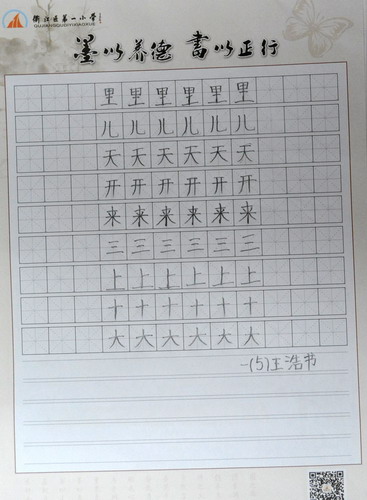 衢江区第一小学
墨以养德 書以正行
里里里里里里
儿儿儿儿儿儿
天天天天天天
开开开开开开
来来来来来来
三三三三三三
上上上上上上
十十十十十十
大大大大大大
一(5)王浩书